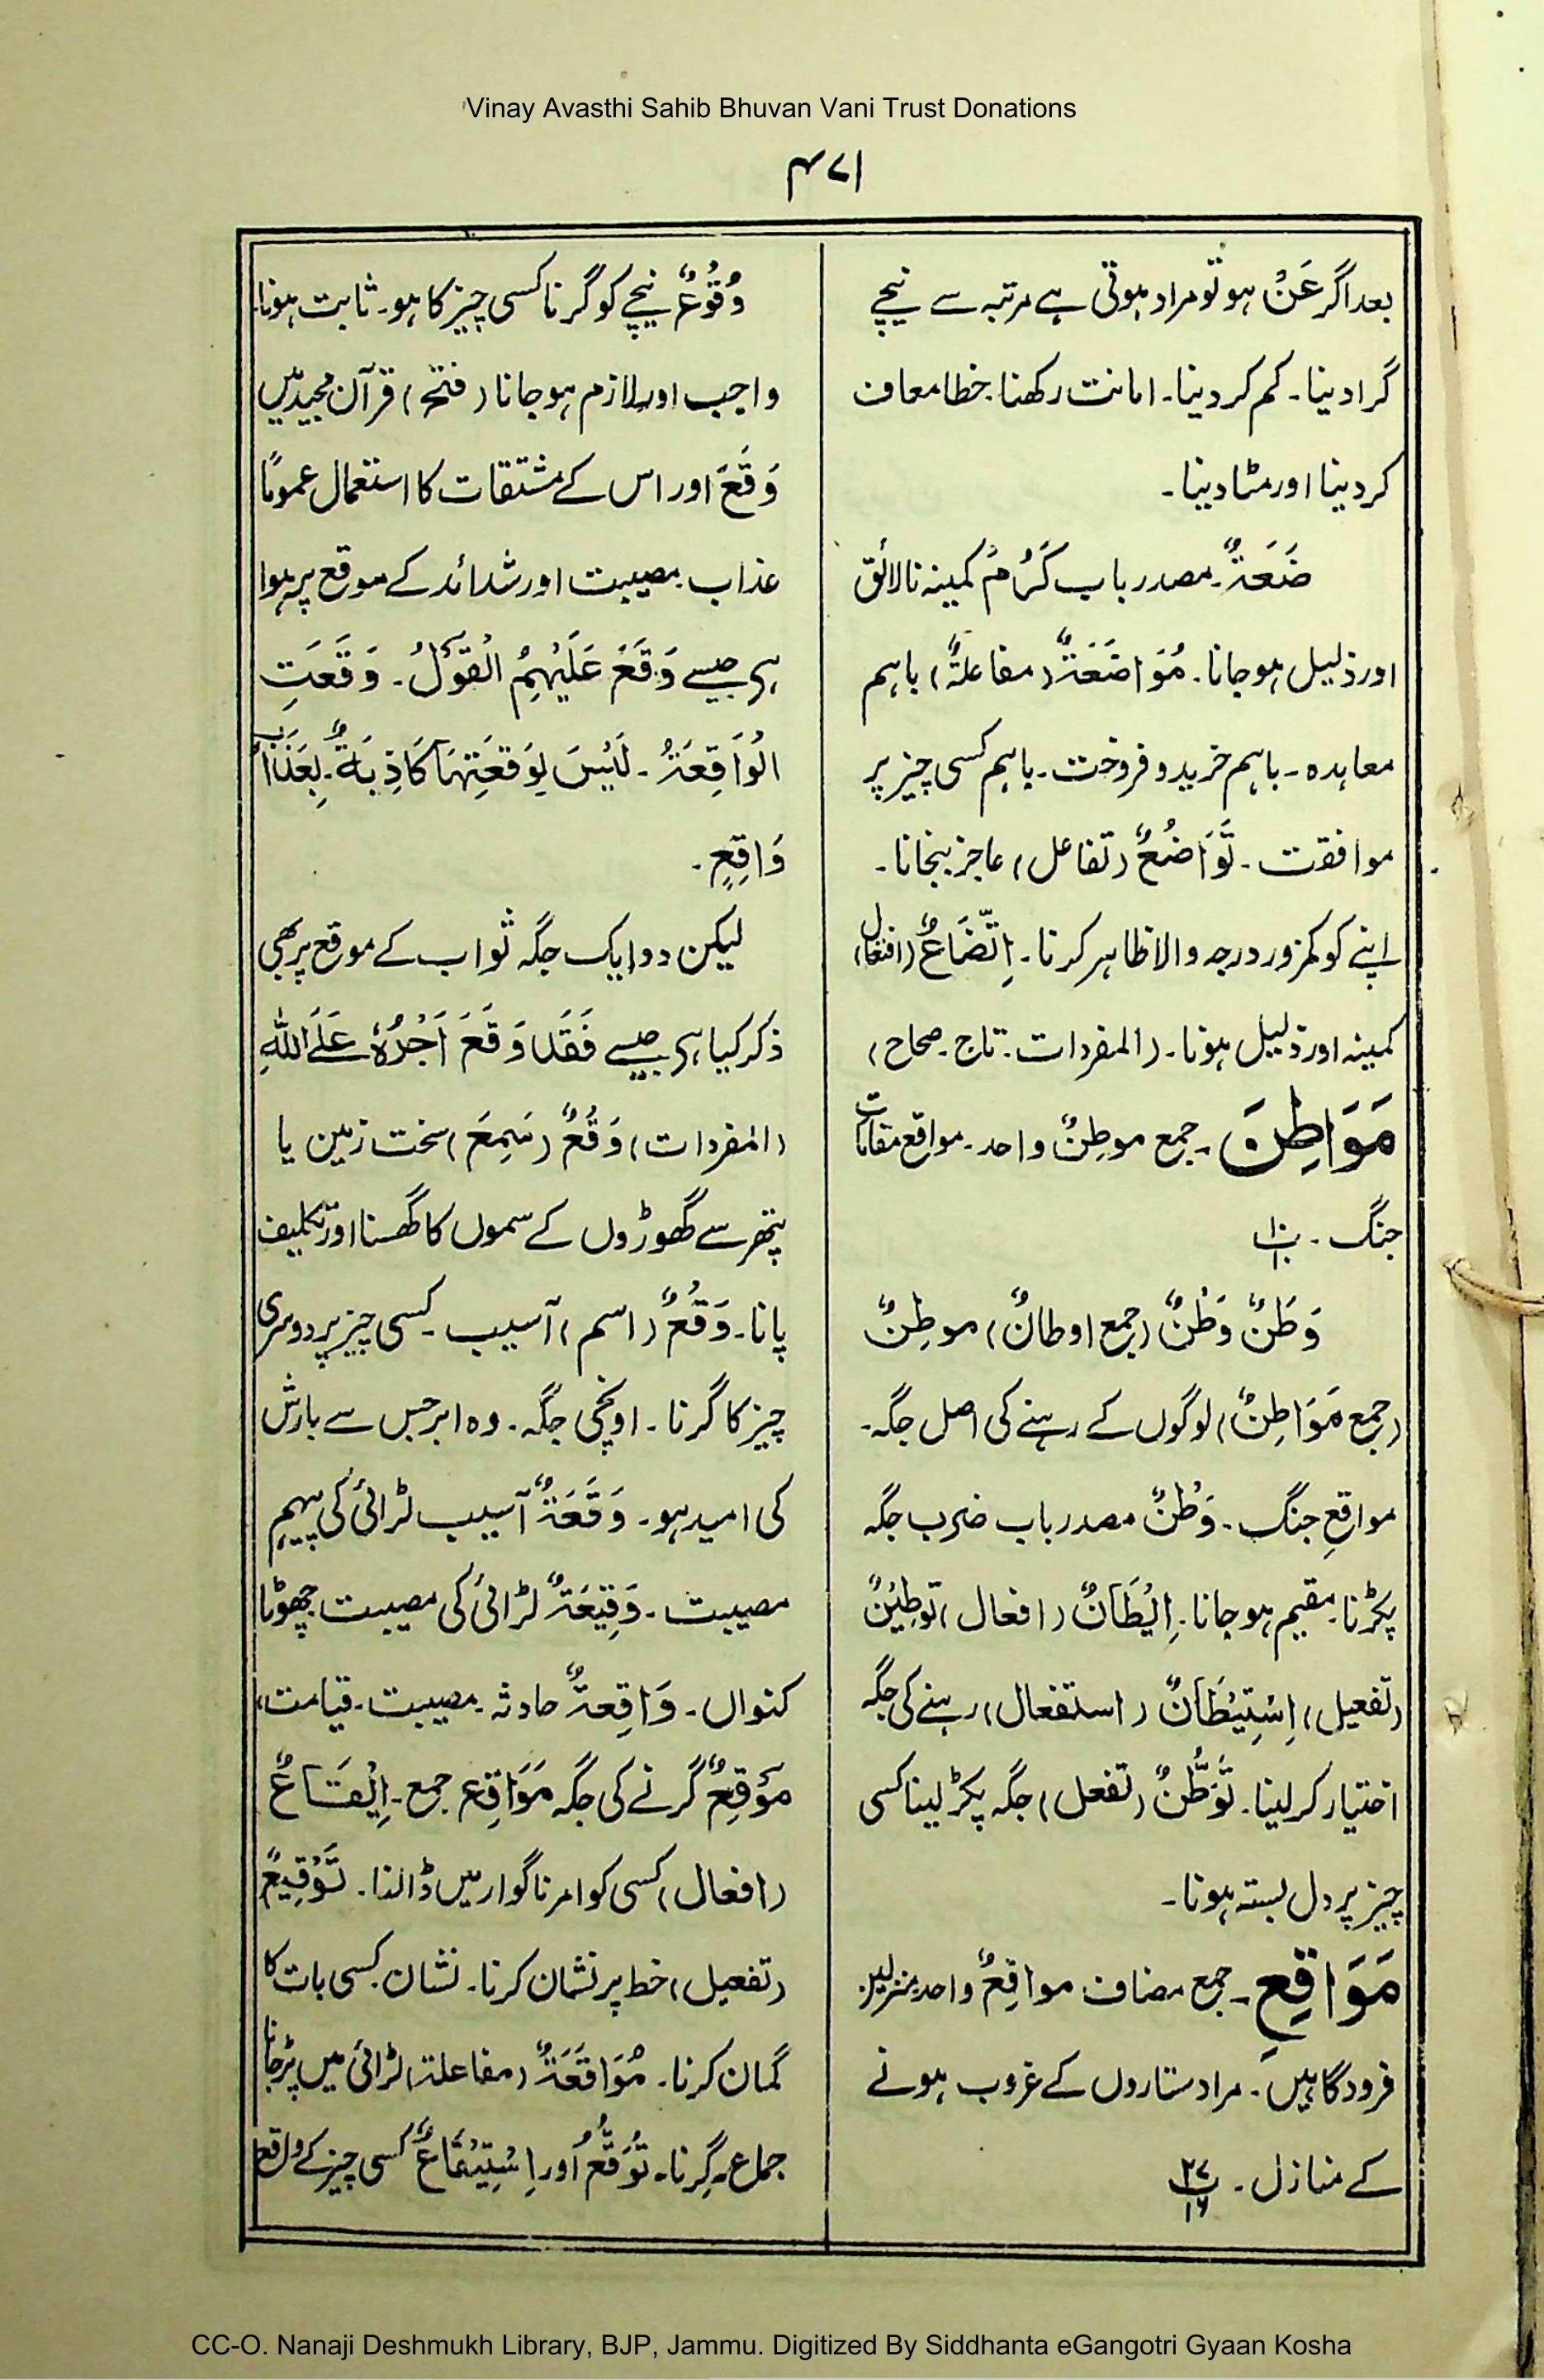 Vinay Avasthi Sahib Bhuvan Vani Trust Donations
۴۷۱
بعد اگر عَنْ ہو تو مراد ہوتی ہے مرتبہ سے نیچے
گرا دینا۔ کم کر دینا۔ امانت رکھنا۔ خطا معاف
کر دینا اور مٹا دینا۔
ضَعَةٌ۔ مصدر باب كَرُمَ کمینہ نالائق
اور ذلیل ہو جانا۔ مُوَاضَعَةٌ (مفاعلةٌ) باہم
معاہدہ۔ باہم خرید و فروخت۔ باہم کسی چیز پر
موافقت۔ تَوَاضُعٌ (تفاعل) عاجز بنجانا۔
اپنے کو کمزور درجہ والا ظاہر کرنا۔ اِتِّضَاعٌ (افتعال)
کمینہ اور ذلیل ہونا۔ (المفردات۔ تاج۔ صحاح)
مَوَاطِنَ۔ جمع موطِنٌ واحد۔ مواقع مقامات
جنگ۔ پ۱۰
وَطَنٌ وَطْنٌ (جمع اوطانٌ) موطِنٌ
(جمع مَوَاطِنٌ) لوگوں کے رہنے کی اصل جگہ۔
مواقعِ جنگ۔ وَطْنٌ مصدر باب ضرب جگہ
پکڑنا۔ مقیم ہو جانا۔ اِيْطَانٌ (افعال) تَوطِيْنٌ
(تفعیل) اِسْتِيْطَانٌ (استفعال) رہنے کی جگہ
اختیار کر لینا۔ تَوَطُّنٌ (تفعل) جگہ پکڑ لینا کسی
چیز پر دل بستہ ہونا۔
مَوَاقِعِ۔ جمع مضاف مواقِعٌ واحد منزلیں
فرودگاہیں۔ مراد ستاروں کے غروب ہونے
کے منازل۔ پ۲۷ ۱۶
وُقُوْعٌ نیچے کو گرنا کسی چیز کا ہو۔ ثابت ہونا۔
واجب اور لازم ہو جانا (فتح) قرآن مجید میں
وَقَعَ اور اس کے مشتقات کا استعمال عمومًا
عذاب۔ مصیبت اور شدائد کے موقع پر ہوا
ہی جیسے وَقَعَ عَلَيْهِمُ الْقَوْلُ۔ وَقَعَتِ
الْوَاقِعَةُ۔ لَيْسَ لِوَقْعَتِهَا كَاذِبَةٌ۔ بِعَذَابٍ
وَاقِعٍ۔
لیکن دو ایک جگہ ثواب کے موقع پر بھی
ذکر کیا ہی جیسے فَقَدْ وَقَعَ اَجْرُهٗ عَلَى اللهِ
(المفردات) وَقَعٌ (سَمِعَ) سخت زمین یا
پتھر سے گھوڑوں کے سموں کا گھسنا اور تکلیف
پانا۔ وَقْعٌ (اسم) آسیب۔ کسی چیز پر دوسری
چیز کا گرنا۔ اونچی جگہ۔ وہ ابر جس سے بارش
کی امید ہو۔ وَقْعَةٌ آسیب لڑائی کی پیہم
مصیبت۔ وَقِيْعَةٌ لڑائی کی مصیبت چھوٹا
کنواں۔ وَاقِعةٌ حادثہ۔ مصیبت۔ قیامت،
مَوْقِعٌ گرنے کی جگہ مَوَاقِع جمع۔ اِيْقَاعٌ
(افعال) کسی کو امر ناگوار میں ڈالنا۔ تَوْقِيْعٌ
(تفعیل) خط پر نشان کرنا۔ نشان کسی بات کا
گمان کرنا۔ مُوَاقَعَةٌ (مفاعلة) لڑائی میں پڑجانا
جماع۔ گرنا۔ تَوَقُّعٌ اور اِسْتِيْقَاعٌ کسی چیز کے واقع
CC-O. Nanaji Deshmukh Library, BJP, Jammu. Digitized By Siddhanta eGangotri Gyaan Kosha